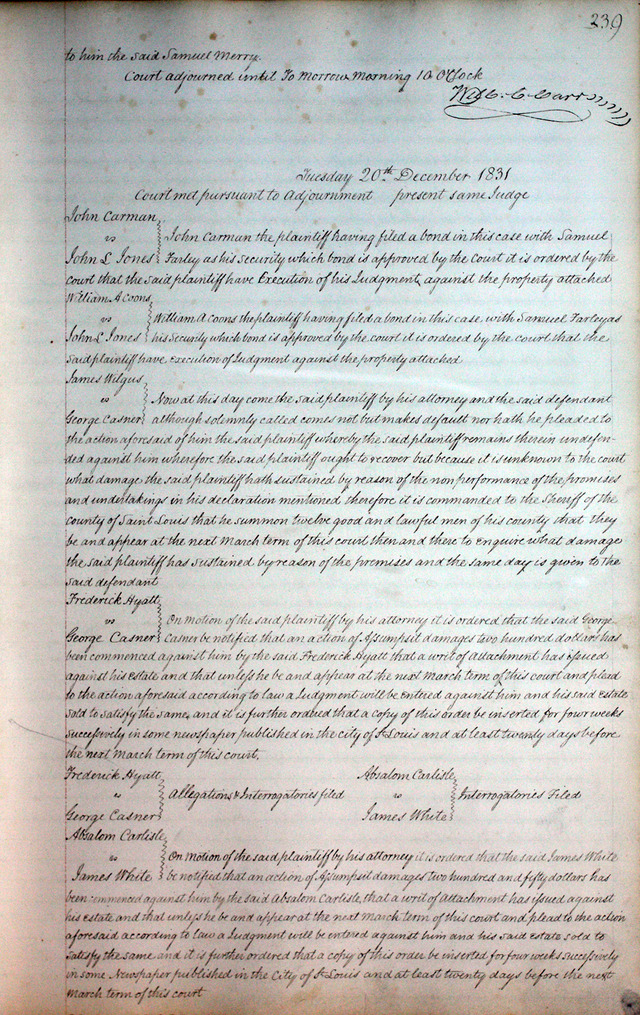 239
to him the said Samuel Merry.
Court adjourned until To Morrow Morning 10 O'Clock
Wm. C. Carr
Tuesday 20th December 1831
Court met pursuant to Adjournment present same Judge
John Carman
vs
John L Jones
John Carman the plaintiff having filed a bond in this case with Samuel
Farley as his Security which bond is approved by the Court it is ordered by the
court that the said plaintiff have Execution of his Judgment against the property attached
William A Coons
vs
John L Jones
William A Coons the plaintiff having filed a bond in this case with Samuel Farley as
his Security which bond is approved by the court it is ordered by the court that the
said plaintiff have execution of Judgment against the property attached
James Wilgus
vs
George Casner
Now at this day come the said plaintiff by his attorney and the said defendant
although solemnly called comes not but makes default nor hath he pleaded to
the action aforesaid of him the said plaintiff whereby the said plaintiff remains therein undefen-
ded against him wherefore the said plaintiff ought to recover but because it is unknown to the court
what damage the said plaintiff hath sustained by reason of the non performance of the promises
and undertakings in his declaration mentioned therefore it is commanded to the Sheriff of the
county of Saint Louis that he summon twelve good and lawful men of his county that they
be and appear at the next March term of this court then and there to Enquire what damage
the said plaintiff has sustained by reason of the premises and the same day is given to the
said defendant
Frederick Hyatt
vs
George Casner
On motion of the said plaintiff by his attorney it is ordered that the said George
Casner be notified that an action of Assumpsit damages two hundred dollars has
been commenced against him by the said Frederick Hyatt that a writ of attachment has issued
against his Estate and that unless he be and appear at the next March term of this court and plead
to the action aforesaid according to law a Judgment will be entered against him and his said Estate
sold to satisfy the same, and it is further ordered that a copy of this order be inserted for four weeks
successively in some newspaper published in the city of St Louis and at least twenty days before
the next March term of this court.
Frederick Hyatt
vs
George Casner
Allegations & Interrogatories filed
Absalom Carlisle
vs
James White
Interrogatories Filed
Absalom Carlisle
vs
James White
On motion of the said plaintiff by his attorney it is ordered that the said James White
be notified that an action of Assumpsit damages two hundred and fifty dollars has
been commenced against him by the said Absalom Carlisle, that a writ of attachment has issued against
his estate and that unless he be and appear at the next March term of this court and plead to the action
aforesaid according to law a Judgment will be entered against him and his said Estate sold to
satisfy the same and it is further ordered that a copy of this order be inserted for four weeks successively
in some Newspaper published in the City of St Louis and at least twenty days before the next
March term of this court